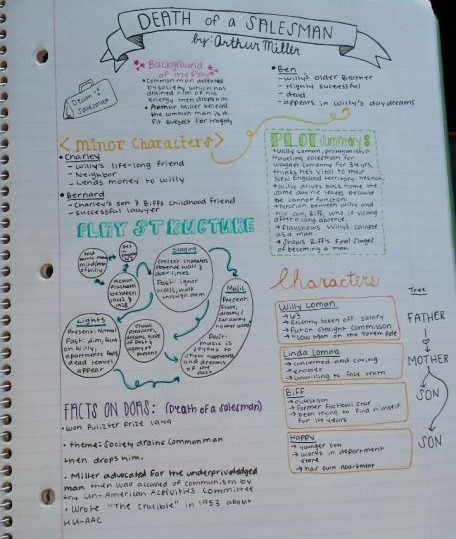 DEATH of a SALESMAN
by: Arthur Miller
Death of a
Salesman
Background
of the Play
• Common man
by society which has
drained him of his
energy then drops him
• Arthur Miller
the common man is a
fit subject for tragedy
• Ben
- Willy's older Brother
- Highly successful
- dead
- appears in Willy's daydreams
<minor characters>
• Charley
- Willy's life-long friend
- Neighbor
- Lends money to Willy
• Bernard
- Charley's son & Biff's childhood friend
- successful lawyer
PLOT summary
• Willy Loman, protagonist, a
traveling salesman for
Wagner Company for 34 yrs,
thinks he's vital to their
New England territory
• Willy drives back home the
same day he leaves because
he cannot function.
• Tension between Willy and
his son, Biff, who is visiting
after a long absence.
• Play shows Willy's collapse
as a man.
• Shows Biff's final stages
of becoming a man.
PLAY STRUCTURE
Staging
Present: characters
observe wall &
door lines
Past: ignor
walls, walk
through them
Action
between
Music
Present: Flute,
Past:
music is
joyous to
show happiness
and dreams
of the past
Lights
Present: Normal
Past: dim, focus
on Willy,
apartments fade,
dead leaves
appear
Characters
Tree
Willy Loman
→ 63
→ Recently taken off salary
→ Put on straight commission
→ low man on the totem pole
FATHER
Linda Loman
→ concerned and caring
→ enabler
→ unwilling to face truth
MOTHER
Biff
→ oldest son
→ former football star
→ been trying to find himself
for 14 years
SON
Happy
→ younger son
→ works in department
store
→ has own apartment
SON
FACTS ON DOAS: (Death of a salesman)
• Won Pulitzer Prize 1949
• theme: Society drains common man
then drops him.
• Miller advocated for the underprivledged
man then was accused of communism by
the Un-American Activities Committee
• Wrote "The Crucible" in 1953 about
HU-AAC